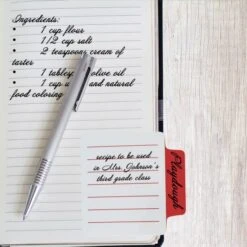 Ingredients:
• 1 cup flour
• 1/2 cup salt
• 2 teaspoons cream of
tartar
• 1 tables olive oil
1 cup and natural
food coloring
Playdough
recipe to be used
in Mrs. Johnson's
third grade class